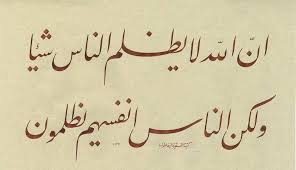 انّ الله لا يظلم الناس شيئا
ولكن الناس انفسهم يظلمون